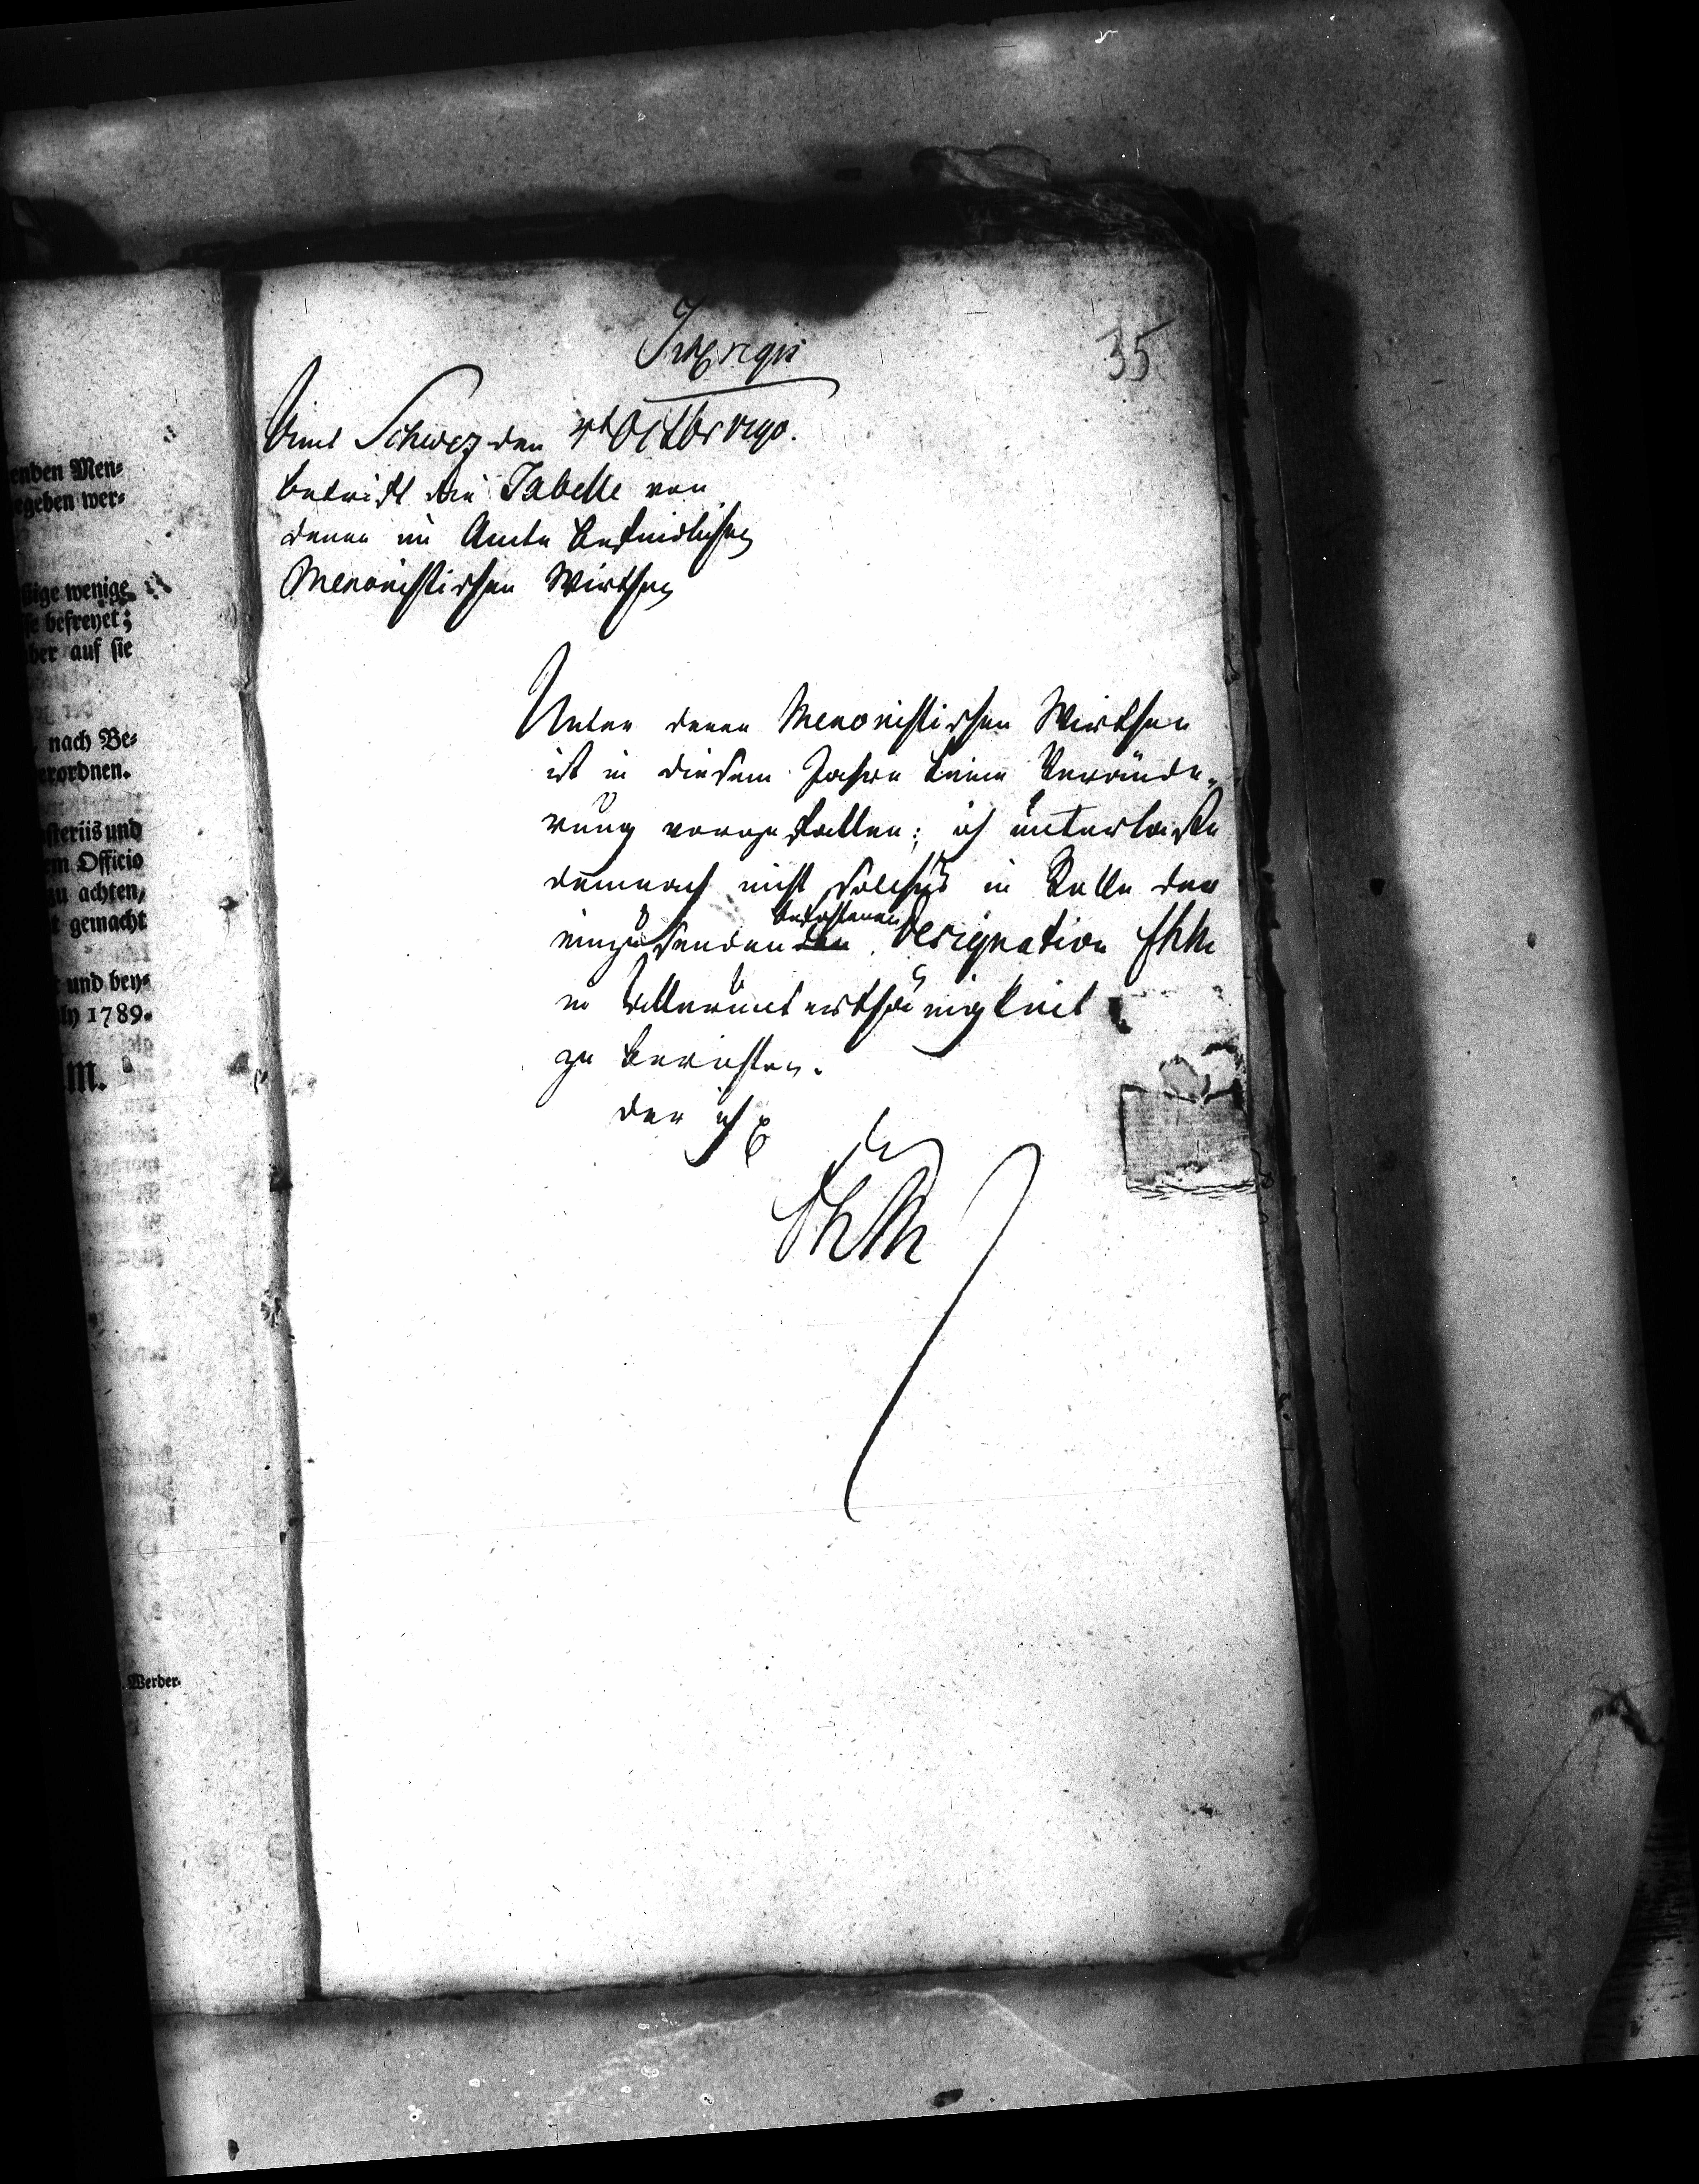 enden Men-
egeben wer-
ßige wenige
se befreyet;
ber auf sie
nach Be-
erordnen.
steriis und
em Officio
zu achten,
t gemacht
und bey-
ly 1789.
m.
Werder.
35
Amt Schwez den 4t Octbr 1790.
betrift die Tabelle von
denen im Amte befindlichen
Menonistischen Wirthen
Unter denen Menonistischen Wirthen
ist in diesem Jahre keine Verände-
rung vorgefallen; ich unterlaße
demnach nicht solches in Stelle der
einzusendenden Designation
in Allerunterthänigkeit
zu berichten.
der ich